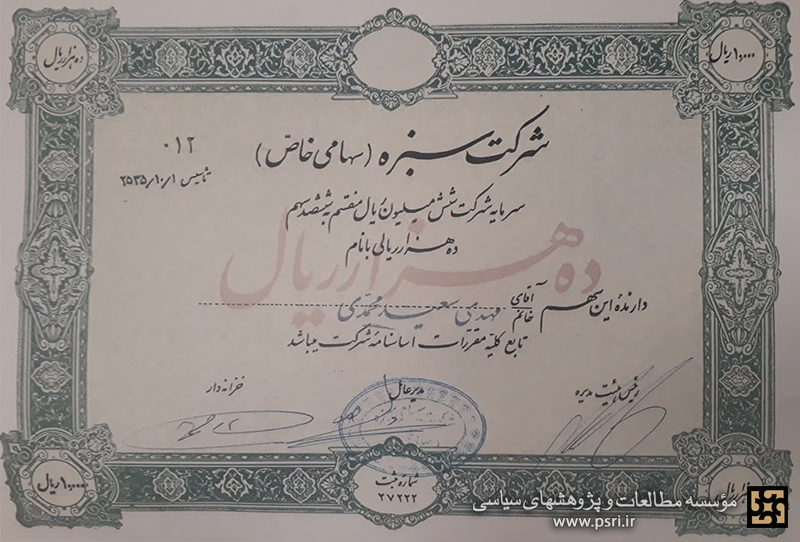 ده هزار ریال
۱۰۰۰۰ ریال
شرکت سبزه (سهامی خاصّ)
۰۱۲
تاسیس ۲۵۳۵/۱۰/۱
سرمایه شرکت شش میلیون ریال منقسم به ششصد سهم
ده هزار ریالی با نام
ده هزار ریال
دارندهٔ این سهم آقای خانم مهدی سعید محمدی
تابع کلیه مقررات اساسنامه شرکت میباشد
رئیس هیئت مدیره
مدیر عامل
خزانه دار
۱۰۰۰۰ ریال
شماره ثبت
۲۷۲۲۲
مؤسسه مطالعات و پژوهشهای سیاسی
www.psri.ir